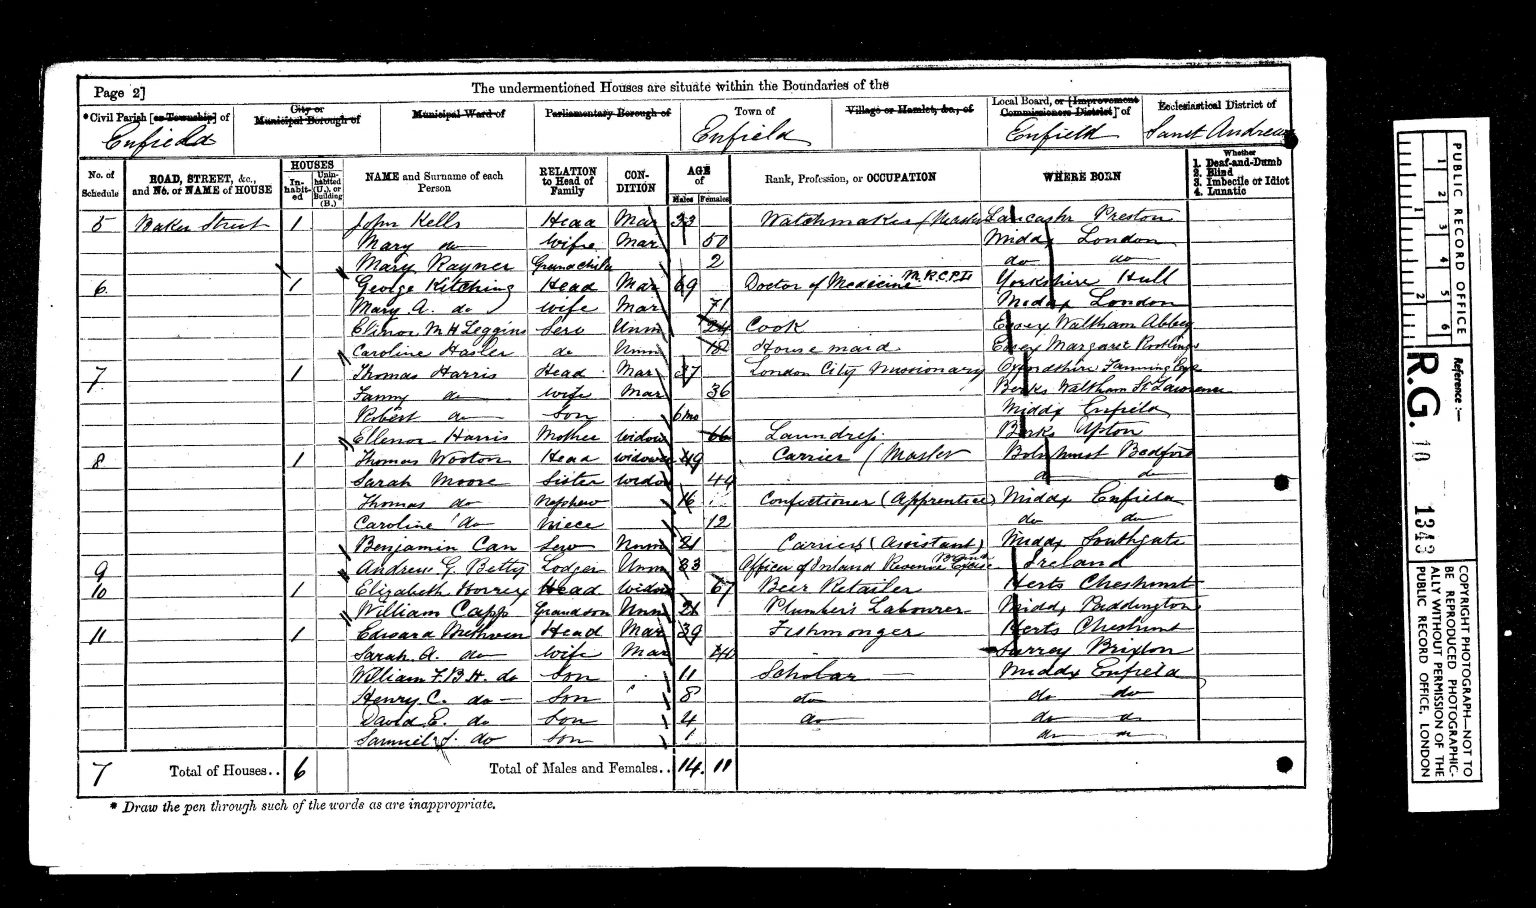 Page 2]
The undermentioned Houses are situate within the Boundaries of the
*Civil Parish [or Township] of
City or Municipal Borough of
Municipal Ward of
Parliamentary Borough of
Town of
Village or Hamlet, &c., of
Local Board, or [Improvement Commissioners District] of
Ecclesiastical District of
Enfield Enfield Enfield Saint Andrews
No. of Schedule
ROAD, STREET, &c., and No. or NAME of HOUSE
HOUSES
Inhabited
Uninhabited (U.), or Building (B.)
NAME and Surname of each Person
RELATION to Head of Family
CONDITION
AGE of
Males Females
Rank, Profession, or OCCUPATION
WHERE BORN
Whether
1. Deaf-and-Dumb
2. Blind
3. Imbecile or Idiot
4. Lunatic
5 Baker Street 1 John Kells Head Mar 33 Watchmaker (Master Lancaster Preston
Mary do Wife Mar 50 Middx London
Mary Rayner Grandchild 2 do do
6 1 George Kitching Head Mar 69 Doctor of Medicine Yorkshire Hull
Mary A. do Wife Mar 71 Middx London
Elinor M H Leggins Serv Unm 24 Cook Essex Waltham Abbey
Caroline Hasler do Unm 18 House maid Essex Margaret Roothings
7 1 Thomas Harris Head Mar 37 London City Missionary
Fanny do Wife Mar 36 Berks Waltham St Lawrence
Robert do Son 6mo Middx Enfield
Ellenor Harris Mother Widow 66 Laundress Berks Upton
8 1 Thomas Wooton Head Widower 49 Carrier (Master Bolnhurst Bedford
Sarah Moore Sister Widow 44 do do
Thomas do Nephew 16 Confectioner (Apprentice) Middx Enfield
Caroline do Niece 12 do do
Benjamin Can Serv Unm 21 Carriers (Assistant) Middx Southgate
9 Andrew G. Betty Lodger Unm 33 Officer of Inland Revenue Excise Ireland
10 1 Elizabeth Horrex Head Widow 67 Beer Retailer Herts Cheshunt
William Capp Grandson Unm 21 Plumber's Labourer Middx Beddington
11 1 Edward Methven Head Mar 39 Fishmonger Herts Cheshunt
Sarah A. do Wife Mar 40 Surrey Brixton
William F.B.H. do Son 11 Scholar Middx Enfield
Henry C. do Son 8 do do do
David E. do Son 4 do do do
Samuel S. do Son 1 do do
7 Total of Houses.. 6 Total of Males and Females.. 14. 11
* Draw the pen through such of the words as are inappropriate.
PUBLIC RECORD OFFICE
1 2 3 4 5 6
1 2
Reference :—
R.G. 10 1343
COPYRIGHT PHOTOGRAPH—NOT TO BE REPRODUCED PHOTOGRAPHICALLY WITHOUT PERMISSION OF THE PUBLIC RECORD OFFICE, LONDON